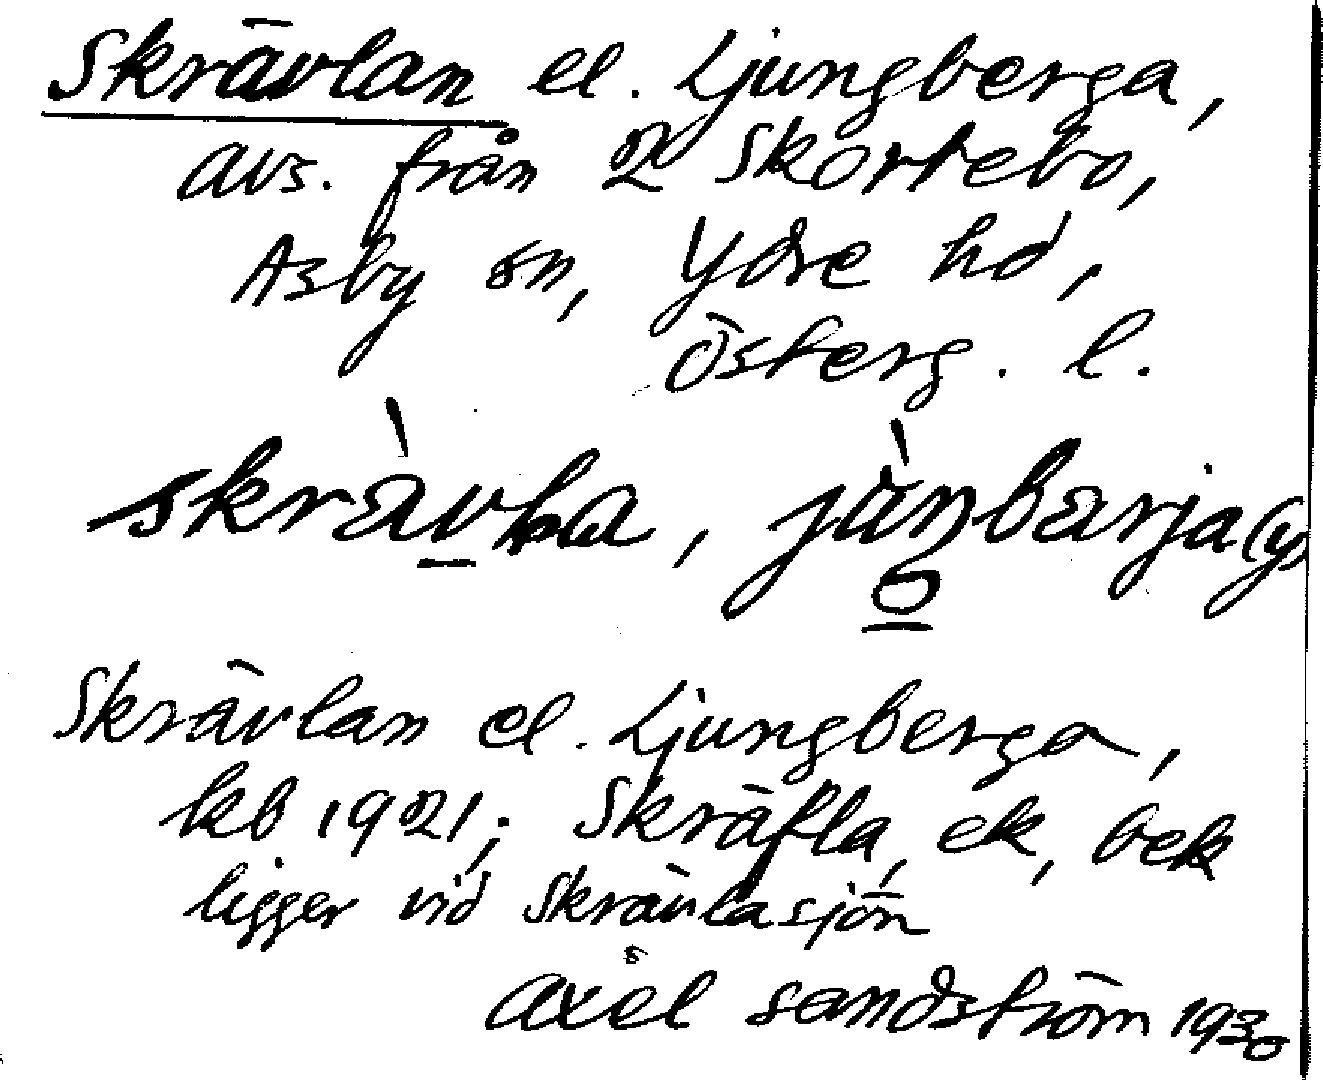 Skrävlan el. Ljungberga,
avs. från 2 Skortebo,
Asby sn, Ydre hd,
Österg. l.
skràvla, jànbarja(y)
Skrävlan el. Ljungberga,
kb 1921; Skräfla, ek, bek
ligger vid Skrävlasjön
Axel Sandström 1930